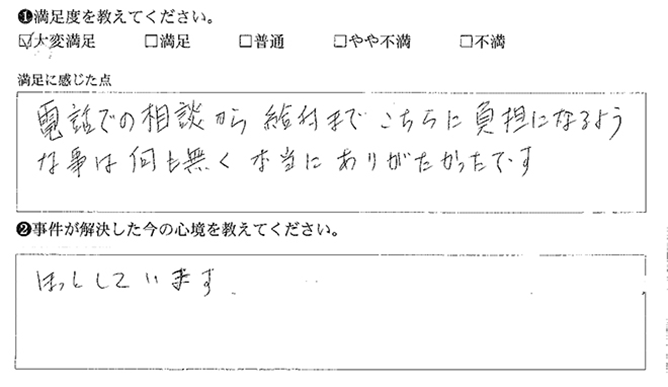 ❶満足度を教えてください。
☑大変満足 □満足 □普通 □やや不満 □不満
満足に感じた点
電話での相談から 給付まで こちらに負担になるよう
な事は何も無く 本当に ありがたかったです
❷事件が解決した今の心境を教えてください。
ほっとしています.